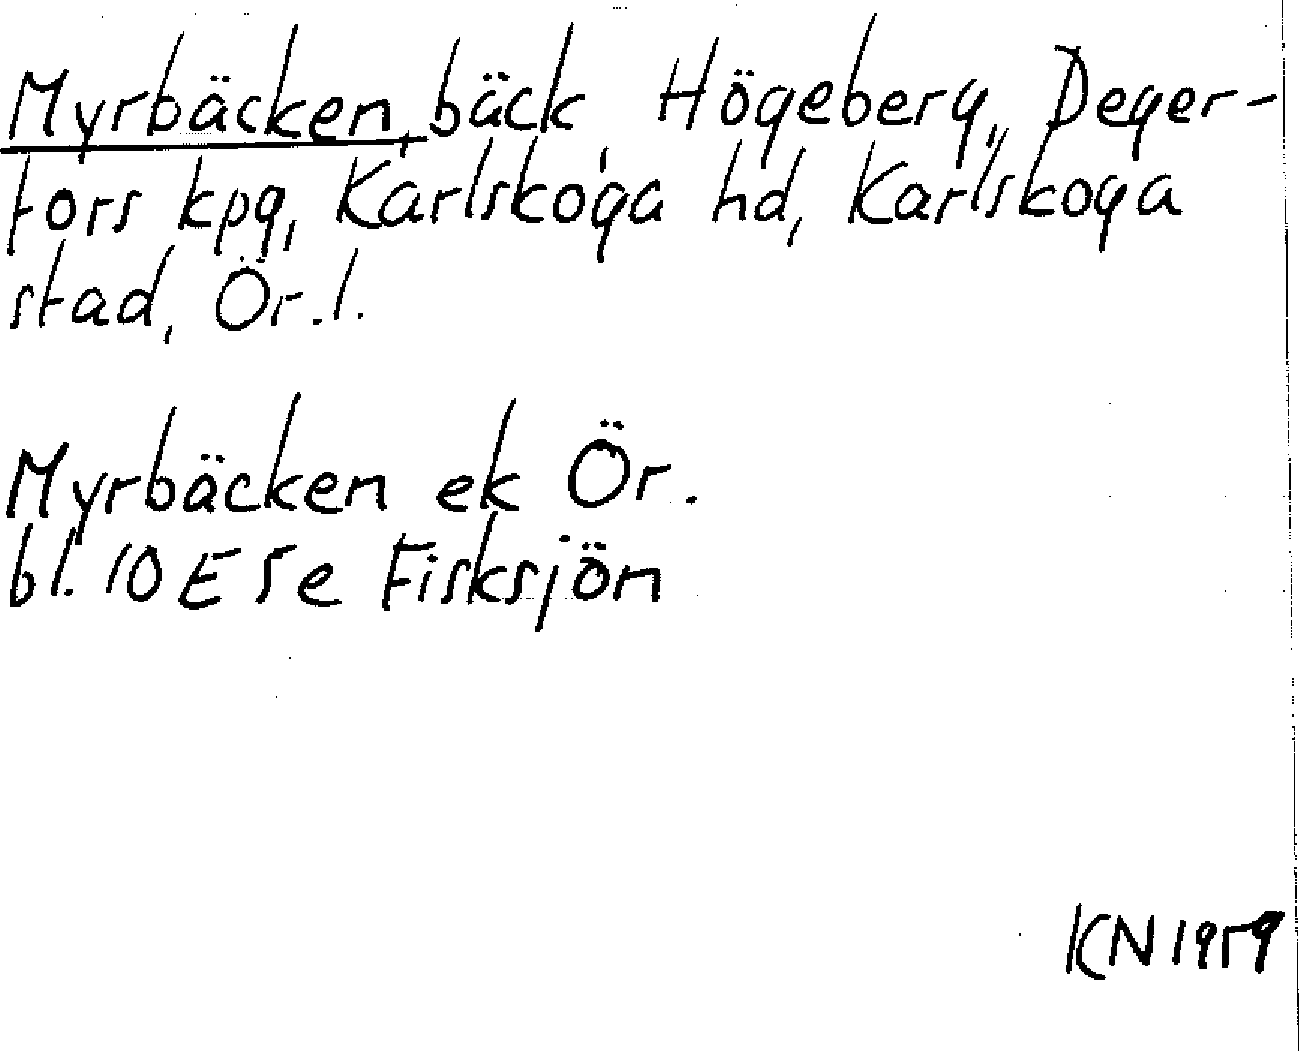 Myrbäcken, bäck, Högeberg, Deger-
fors kpg, Karlskoga hd, Karlskoga
stad, Ör. l.
Myrbäcken ek Ör.
bl. 10 E 5 e Fisksjön
KN 1959